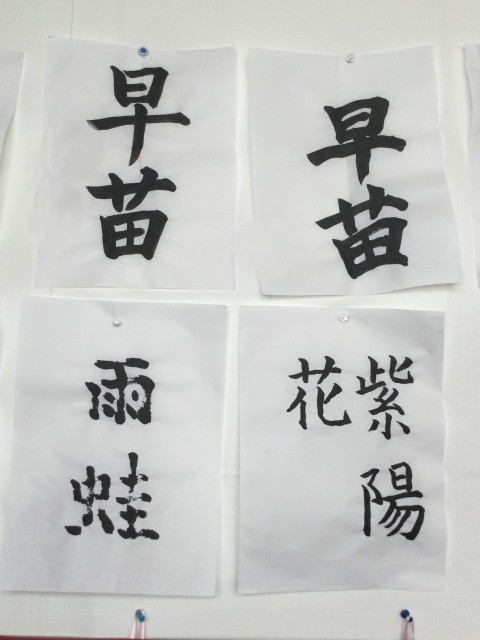 早苗
早苗
雨蛙
紫陽
花